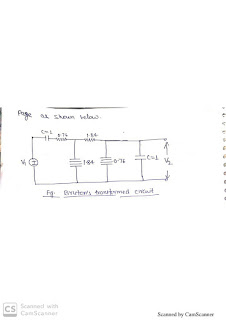 Page as shown below.
C=1 0.76 1.84
V1 1.84 0.76 C=1 V2
Fig: Bruton's transformed circuit
CS Scanned with
CamScanner
Scanned by CamScanner